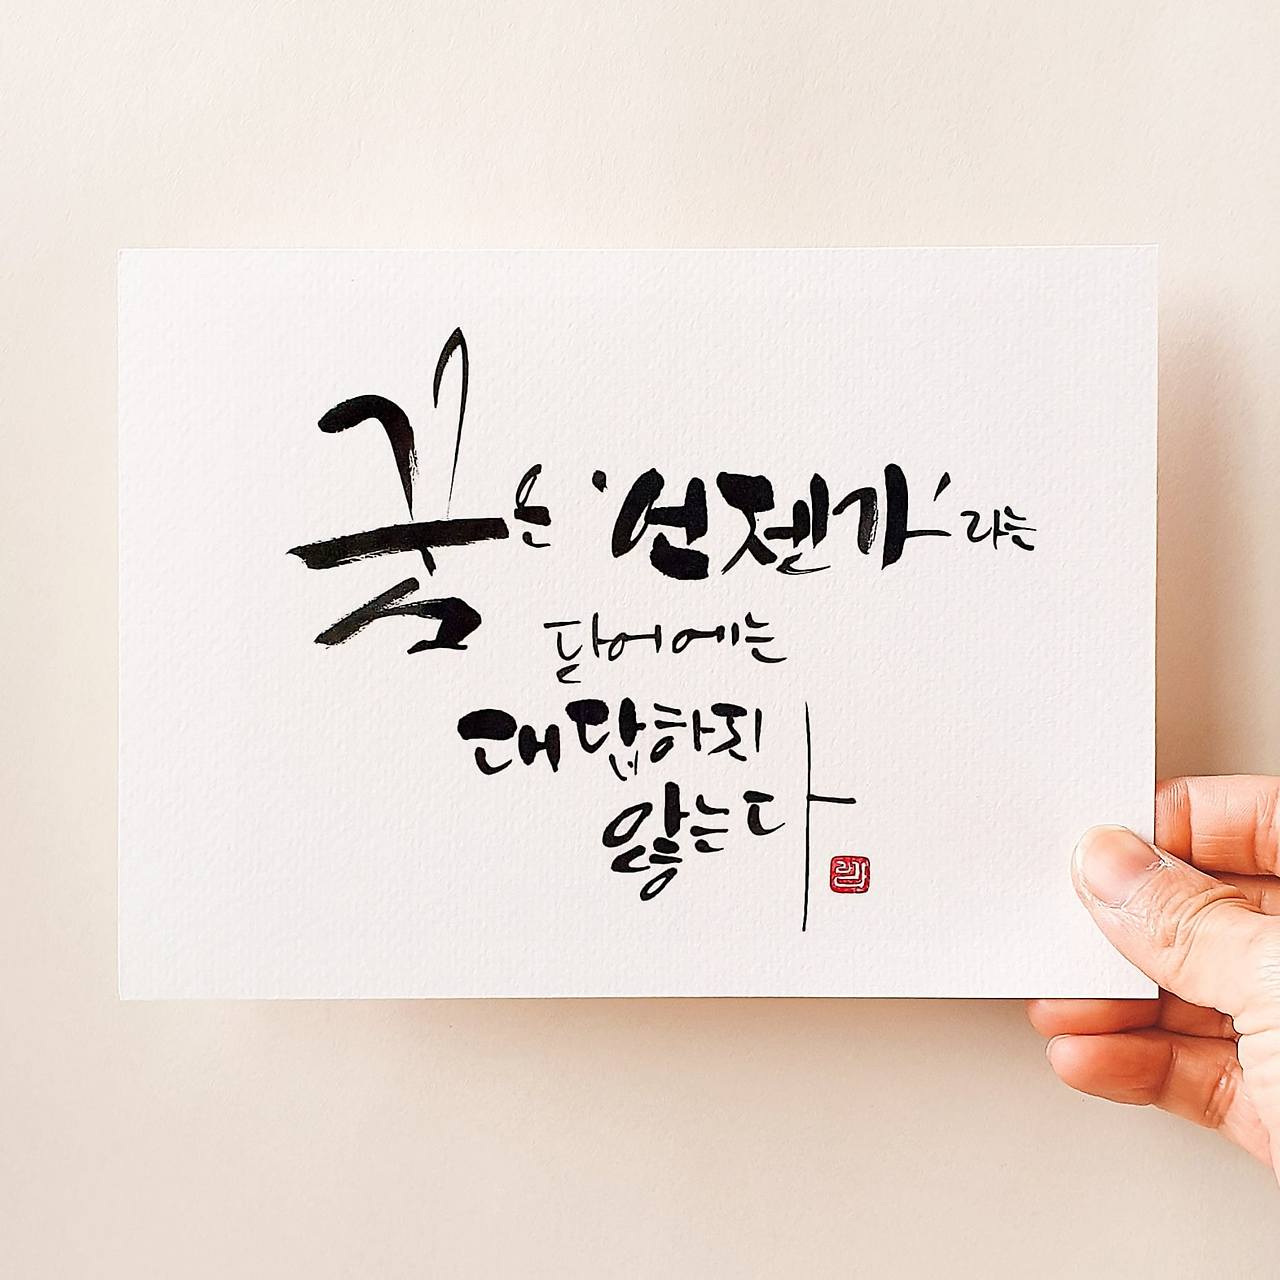 꿈은 '언젠가'라는
단어에는
대답하지
않는다